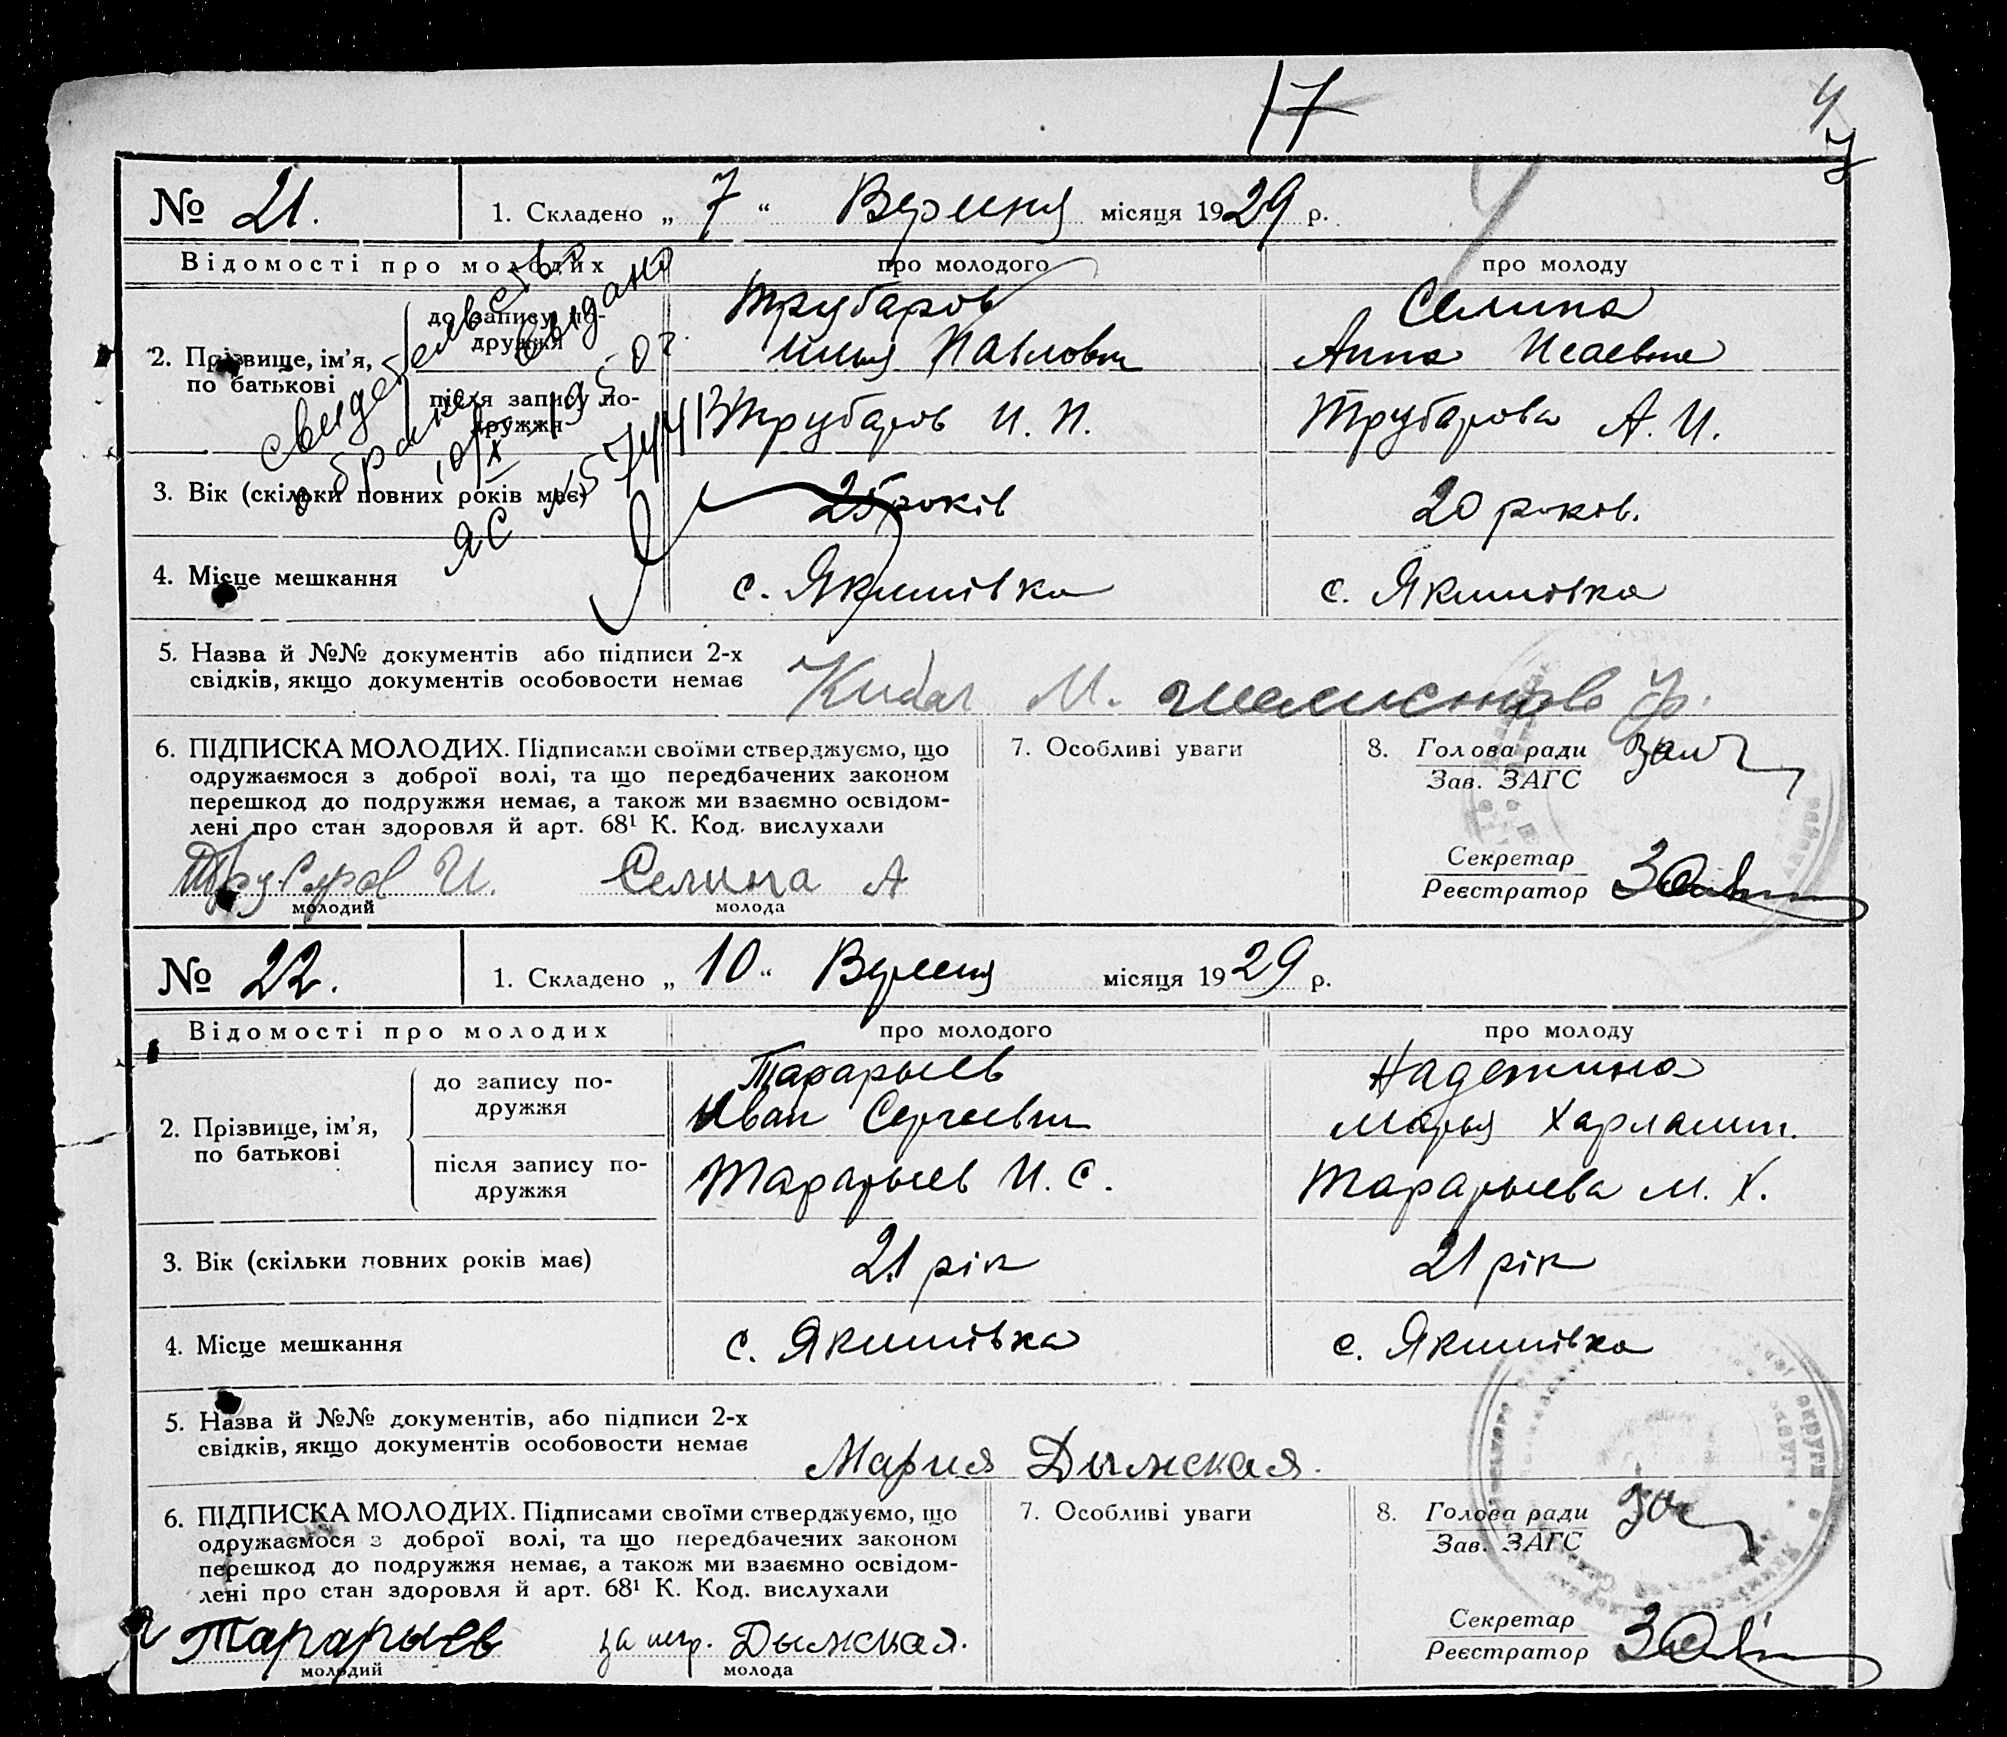 17
4
№ 21. 1. Складено „ 7 “ Вересня місяця 1929 р.
Відомості про молодих про молодого про молоду
2. Прізвище, ім’я, по батькові
до запису по-
дружжя
Трубаров Селина
Илья Павлович Анна Исаевна
після запису по-
дружжя
Трубаров И. П. Трубарова А. И.
свидетельство
о браке выдано
10/X 1950 г.
ЯС № 574413
3. Вік (скільки повних років має) 25 років 20 років.
4. Місце мешкання с. Якимівка с. Якимівка
5. Назва й №№ документів або підписи 2-х
свідків, якщо документів особовости немає
М.
6. ПІДПИСКА МОЛОДИХ. Підписами своїми стверджуємо, що
одружаємося з доброї волі, та що передбачених законом
перешкод до подружжя немає, а також ми взаємно освідом-
лені про стан здоровля й арт. 68¹ К. Код. вислухали
Трубаров И. Селина А
молодий молода
7. Особливі уваги
8. Голова ради
Зав. ЗАГС
Секретар
Реєстратор
№ 22. 1. Складено „ 10 “ Вересня місяця 1929 р.
Відомості про молодих про молодого про молоду
2. Прізвище, ім’я,
по батькові
до запису по-
дружжя
Тарарыев Надежина
Иван Сергеевич Марья Харламп.
після запису по-
дружжя
Тарарыев И. С. Тарарыева М. Х.
3. Вік (скільки повних років має) 21 рік 21 рік
4. Місце мешкання с. Якимівка с. Якимівка
5. Назва й №№ документів, або підписи 2-х
свідків, якщо документів особовости немає
Мария Дымская.
6. ПІДПИСКА МОЛОДИХ. Підписами своїми стверджуємо, що
одружаємося з доброї волі, та що передбачених законом
перешкод до подружжя немає, а також ми взаємно освідом-
лені про стан здоровля й арт. 68¹ К. Код. вислухали
Тарарыев за негр. Дымская.
молодий молода
7. Особливі уваги
8. Голова ради
Зав. ЗАГС
Секретар
Реєстратор